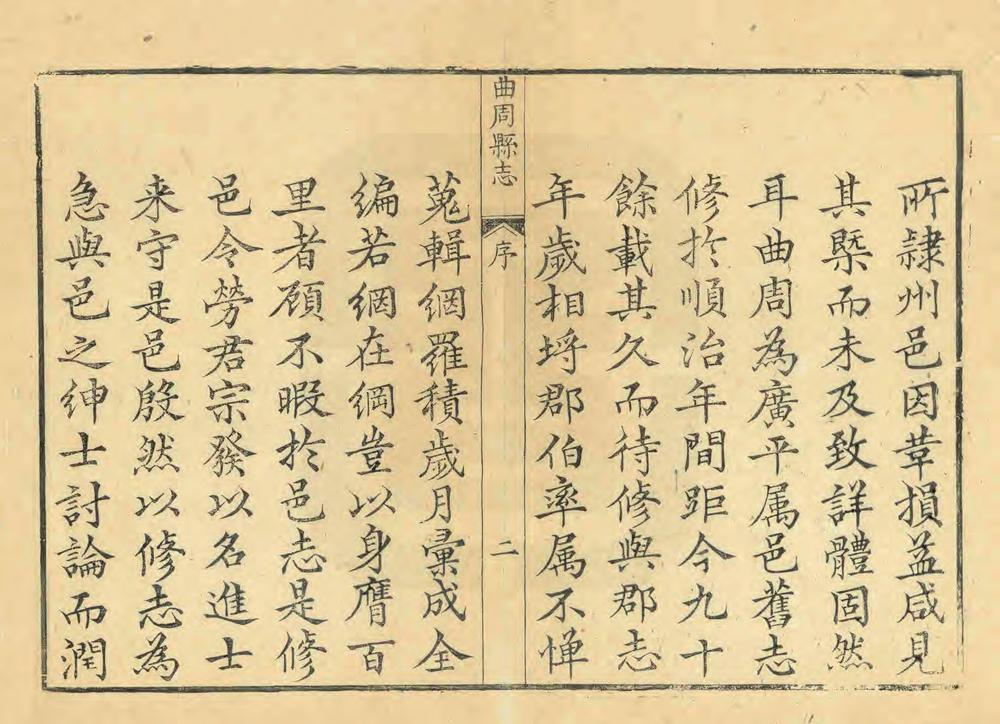 所隷州邑因革損益咸見
其槩而未及致詳體固然
耳曲周為廣平属邑舊志
修於順治年間距今九十
餘載其久而待修與郡志
年歲相埓郡伯率属不憚
曲周縣志
序
二
蒐輯網羅積歲月彙成全
编若網在綱豈以身膺百
里者顧不暇於邑志是修
邑令勞君宗發以名進士
来守是邑殷然以修志為
急與邑之紳士討論而潤